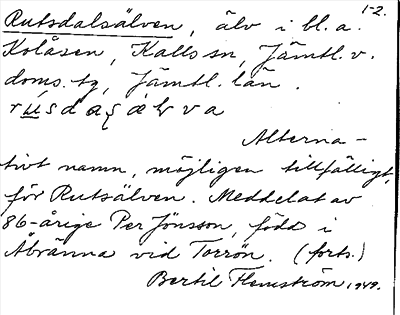 1-2.
Rutsdalsälven, älv i bl.a.
Kolåsen, Kalls sn, Jämtl. v.
doms. tg, Jämtl. län.
Alterna-
tivt namn, möjligen tillfälligt,
för Rutsälven. Meddelat av
86-årige Per Jönsson, född i
Åbränna vid Torrön. (forts.)
Bertil Flemström 1949.